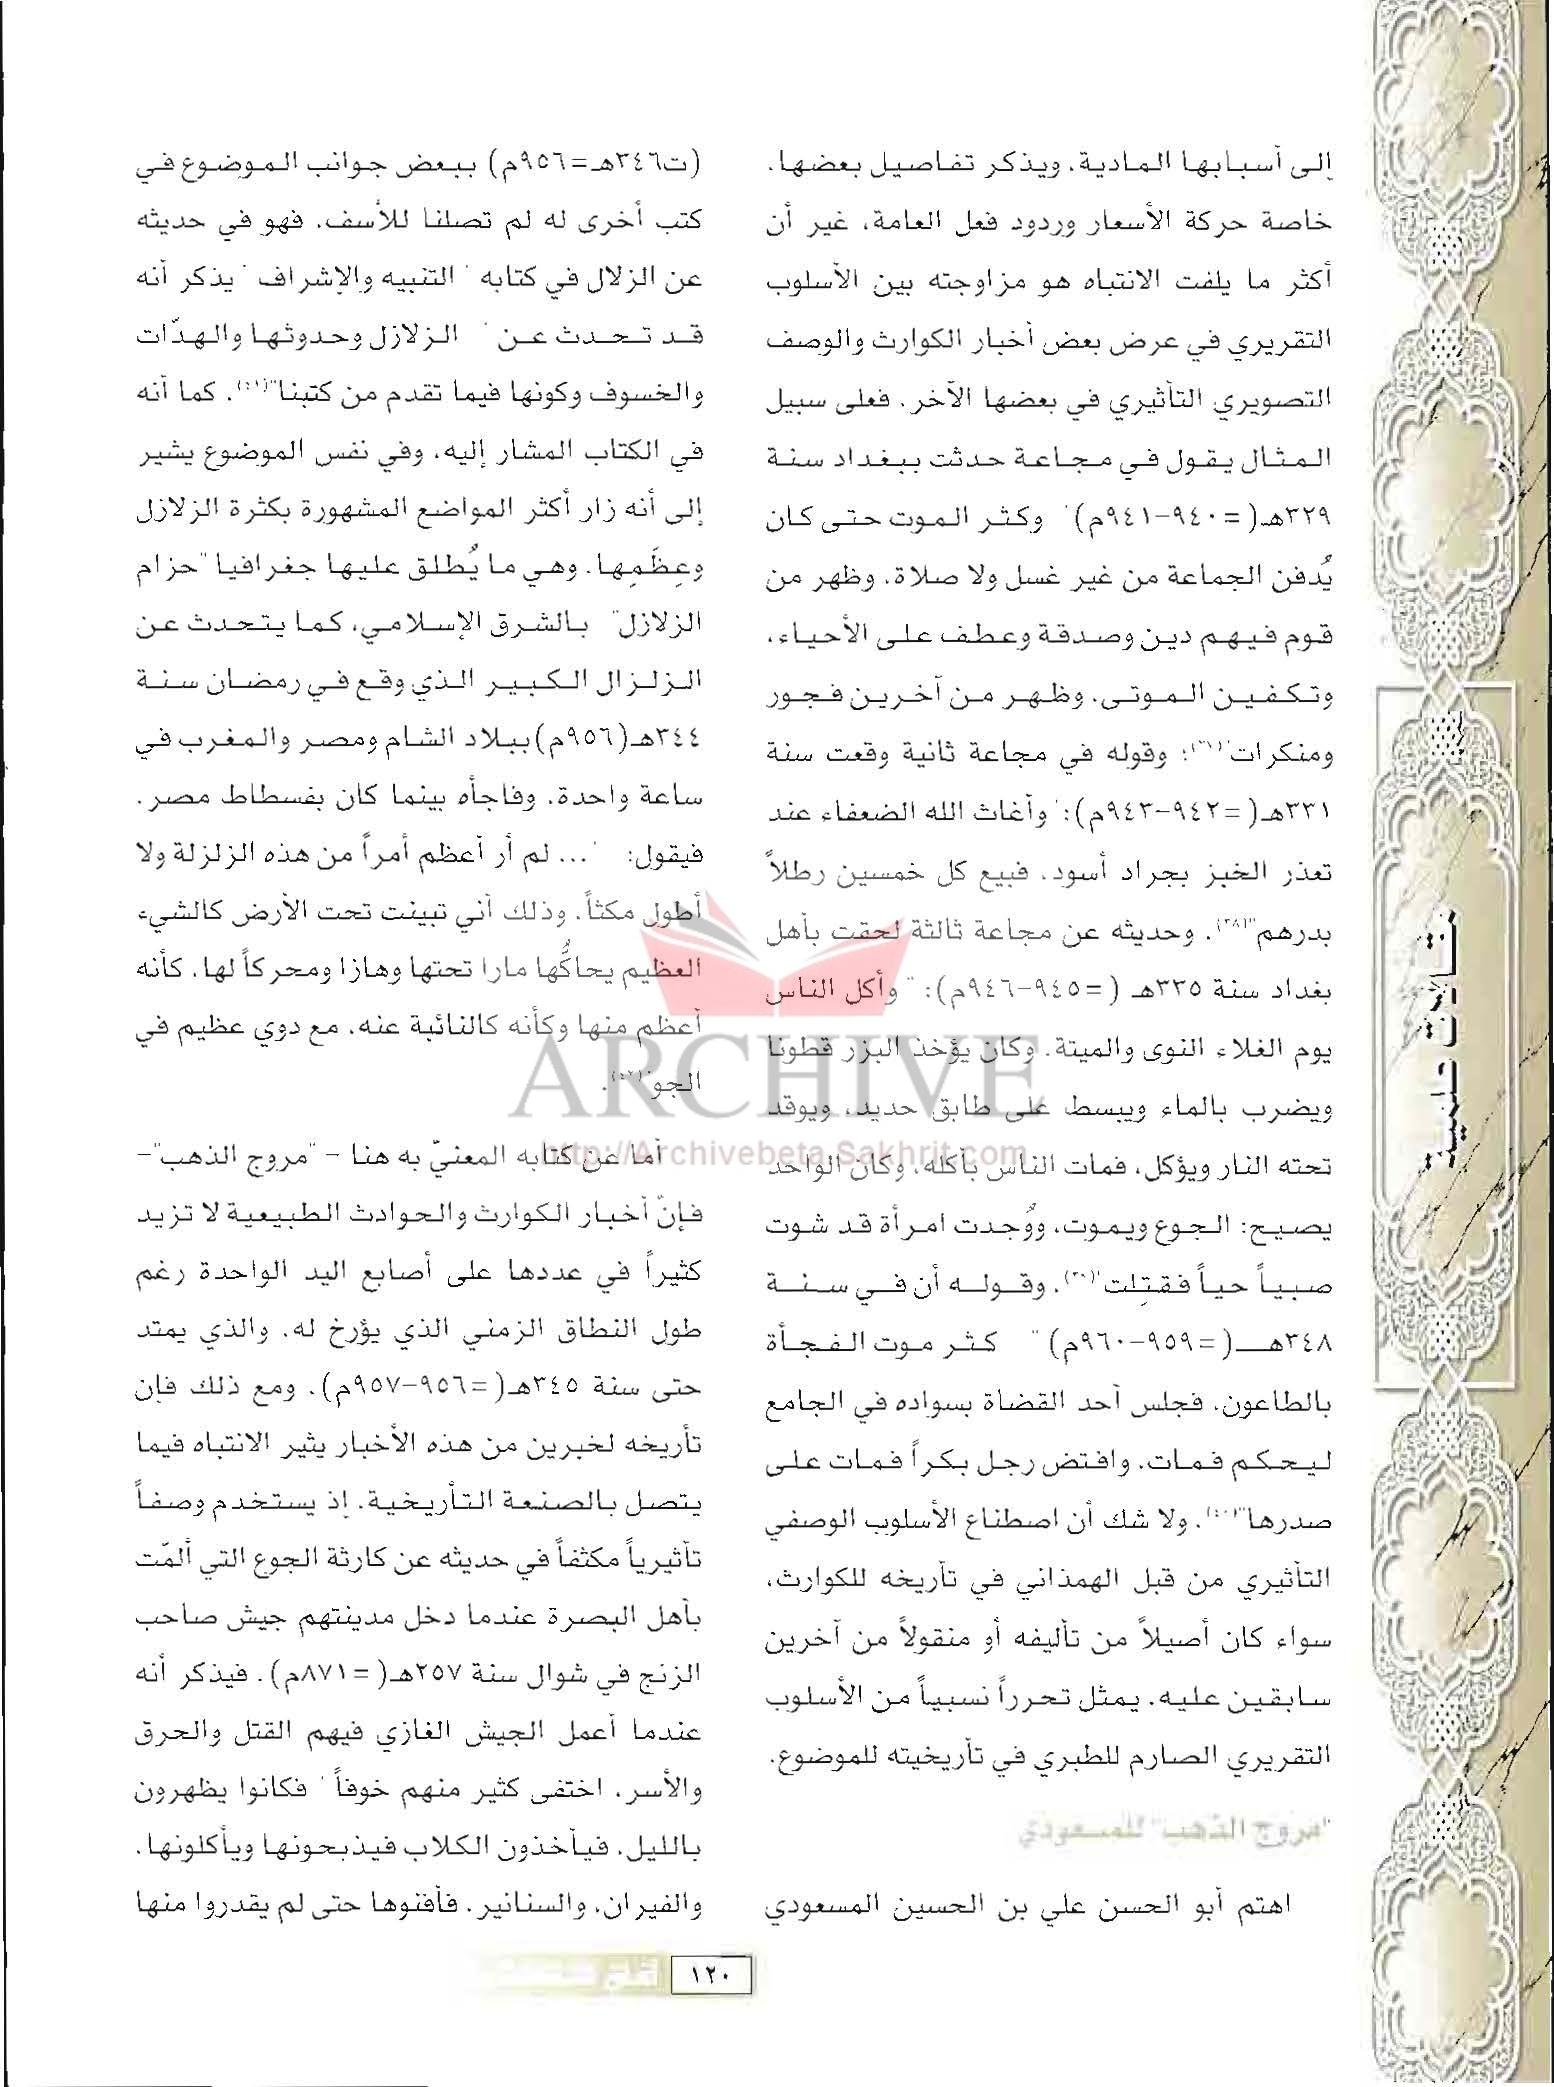 إلى أسبابها المادية، ويذكر تفاصيل بعضها،
خاصة حركة الأسعار وردود فعل العامة، غير أن
أكثر ما يلفت الانتباه هو مزاوجته بين الأسلوب
التقريري في عرض بعض أخبار الكوارث والوصف
التصويري التأثيري في بعضها الآخر. فعلى سبيل
المثال يقول في مجاعة حدثت ببغداد سنة
٣٢٩هـ(=٩٤٠-٩٤١م) " وكثر الموت حتى كان
يُدفن الجماعة من غير غسل ولا صلاة، وظهر من
قوم فيهم دين وصدقة وعطف على الأحياء،
وتكفين الموتى، وظهر من آخرين فجور
ومنكرات"؛ وقوله في مجاعة ثانية وقعت سنة
٣٣١هـ(=٩٤٢-٩٤٣م): "وأغاث الله الضعفاء عند
تعذر الخبز بجراد أسود، فبيع كل خمسين رطلاً
بدرهم"(٣٨). وحديثه عن مجاعة ثالثة لحقت بأهل
بغداد سنة ٣٣٥هـ (=٩٤٥-٩٤٦م): " وأكل الناس
يوم الغلاء النوى والميتة، وكان يؤخذ البزر قطونا
ويضرب بالماء ويبسط على طابق حديد، ويوقد
تحته النار ويؤكل، فمات الناس بأكله، وكان الواحد
يصيح: الجوع ويموت، ووُجدت امرأة قد شوت
صبياً حياً فقتِلت". وقوله أن في سنة
٣٤٨هـ(=٩٥٩-٩٦٠م) " كثر موت الفجأة
بالطاعون، فجلس أحد القضاة بسواده في الجامع
ليحكم فمات، وافتض رجل بكراً فمات على
صدرها"(٤٠). ولا شك أن اصطناع الأسلوب الوصفي
التأثيري من قبل الهمذاني في تأريخه للكوارث،
سواء كان أصيلاً من تأليفه أو منقولاً من آخرين
سابقين عليه، يمثل تحرراً نسبياً من الأسلوب
التقريري الصارم للطبري في تأريخيته للموضوع.
"مروج الذهب" للمسعودي
اهتم أبو الحسن علي بن الحسين المسعودي
(ت٣٤٦هـ=٩٥٦م) ببعض جوانب الموضوع في
كتب أخرى له لم تصلنا للأسف، فهو في حديثه
عن الزلال في كتابه "التنبيه والإشراف" يذكر أنه
قد تحدث عن " الزلازل وحدوثها والهدّات
والخسوف وكونها فيما تقدم من كتبنا"(٤١). كما أنه
في الكتاب المشار إليه، وفي نفس الموضوع يشير
إلى أنه زار أكثر المواضع المشهورة بكثرة الزلازل
وعِظَمِها، وهي ما يُطلق عليها جغرافيا "حزام
الزلازل" بالشرق الإسلامي، كما يتحدث عن
الزلزال الكبير الذي وقع في رمضان سنة
٣٤٤هـ(٩٥٦م)ببلاد الشام ومصر والمغرب في
ساعة واحدة، وفاجأه بينما كان بفسطاط مصر،
فيقول: "... لم أر أعظم أمراً من هذه الزلزلة ولا
أطول مكثاً، وذلك أني تبينت تحت الأرض كالشيء
العظيم يحاكُّها مارا تحتها وهازا ومحركاً لها، كأنه
أعظم منها وكأنه كالنائبة عنه، مع دوي عظيم في
الجو"(٤٢).
أما عن كتابه المعنيّ به هنا - "مروج الذهب"-
فإنّ أخبار الكوارث والحوادث الطبيعية لا تزيد
كثيراً في عددها على أصابع اليد الواحدة رغم
طول النطاق الزمني الذي يؤرخ له، والذي يمتد
حتى سنة ٣٤٥هـ(=٩٥٦-٩٥٧م). ومع ذلك فإن
تأريخه لخبرين من هذه الأخبار يثير الانتباه فيما
يتصل بالصنعة التأريخية، إذ يستخدم وصفاً
تأثيرياً مكثفاً في حديثه عن كارثة الجوع التي ألمّت
بأهل البصرة عندما دخل مدينتهم جيش صاحب
الزنج في شوال سنة ٢٥٧هـ(=٨٧١م). فيذكر أنه
عندما أعمل الجيش الغازي فيهم القتل والحرق
والأسر، اختفى كثير منهم خوفاً " فكانوا يظهرون
بالليل، فيأخذون الكلاب فيذبحونها ويأكلونها،
والفيران، والسنانير، فأفنوها حتى لم يقدروا منها
ARCHIVE
http://Archivebeta.Sakhrit.com
١٢٠